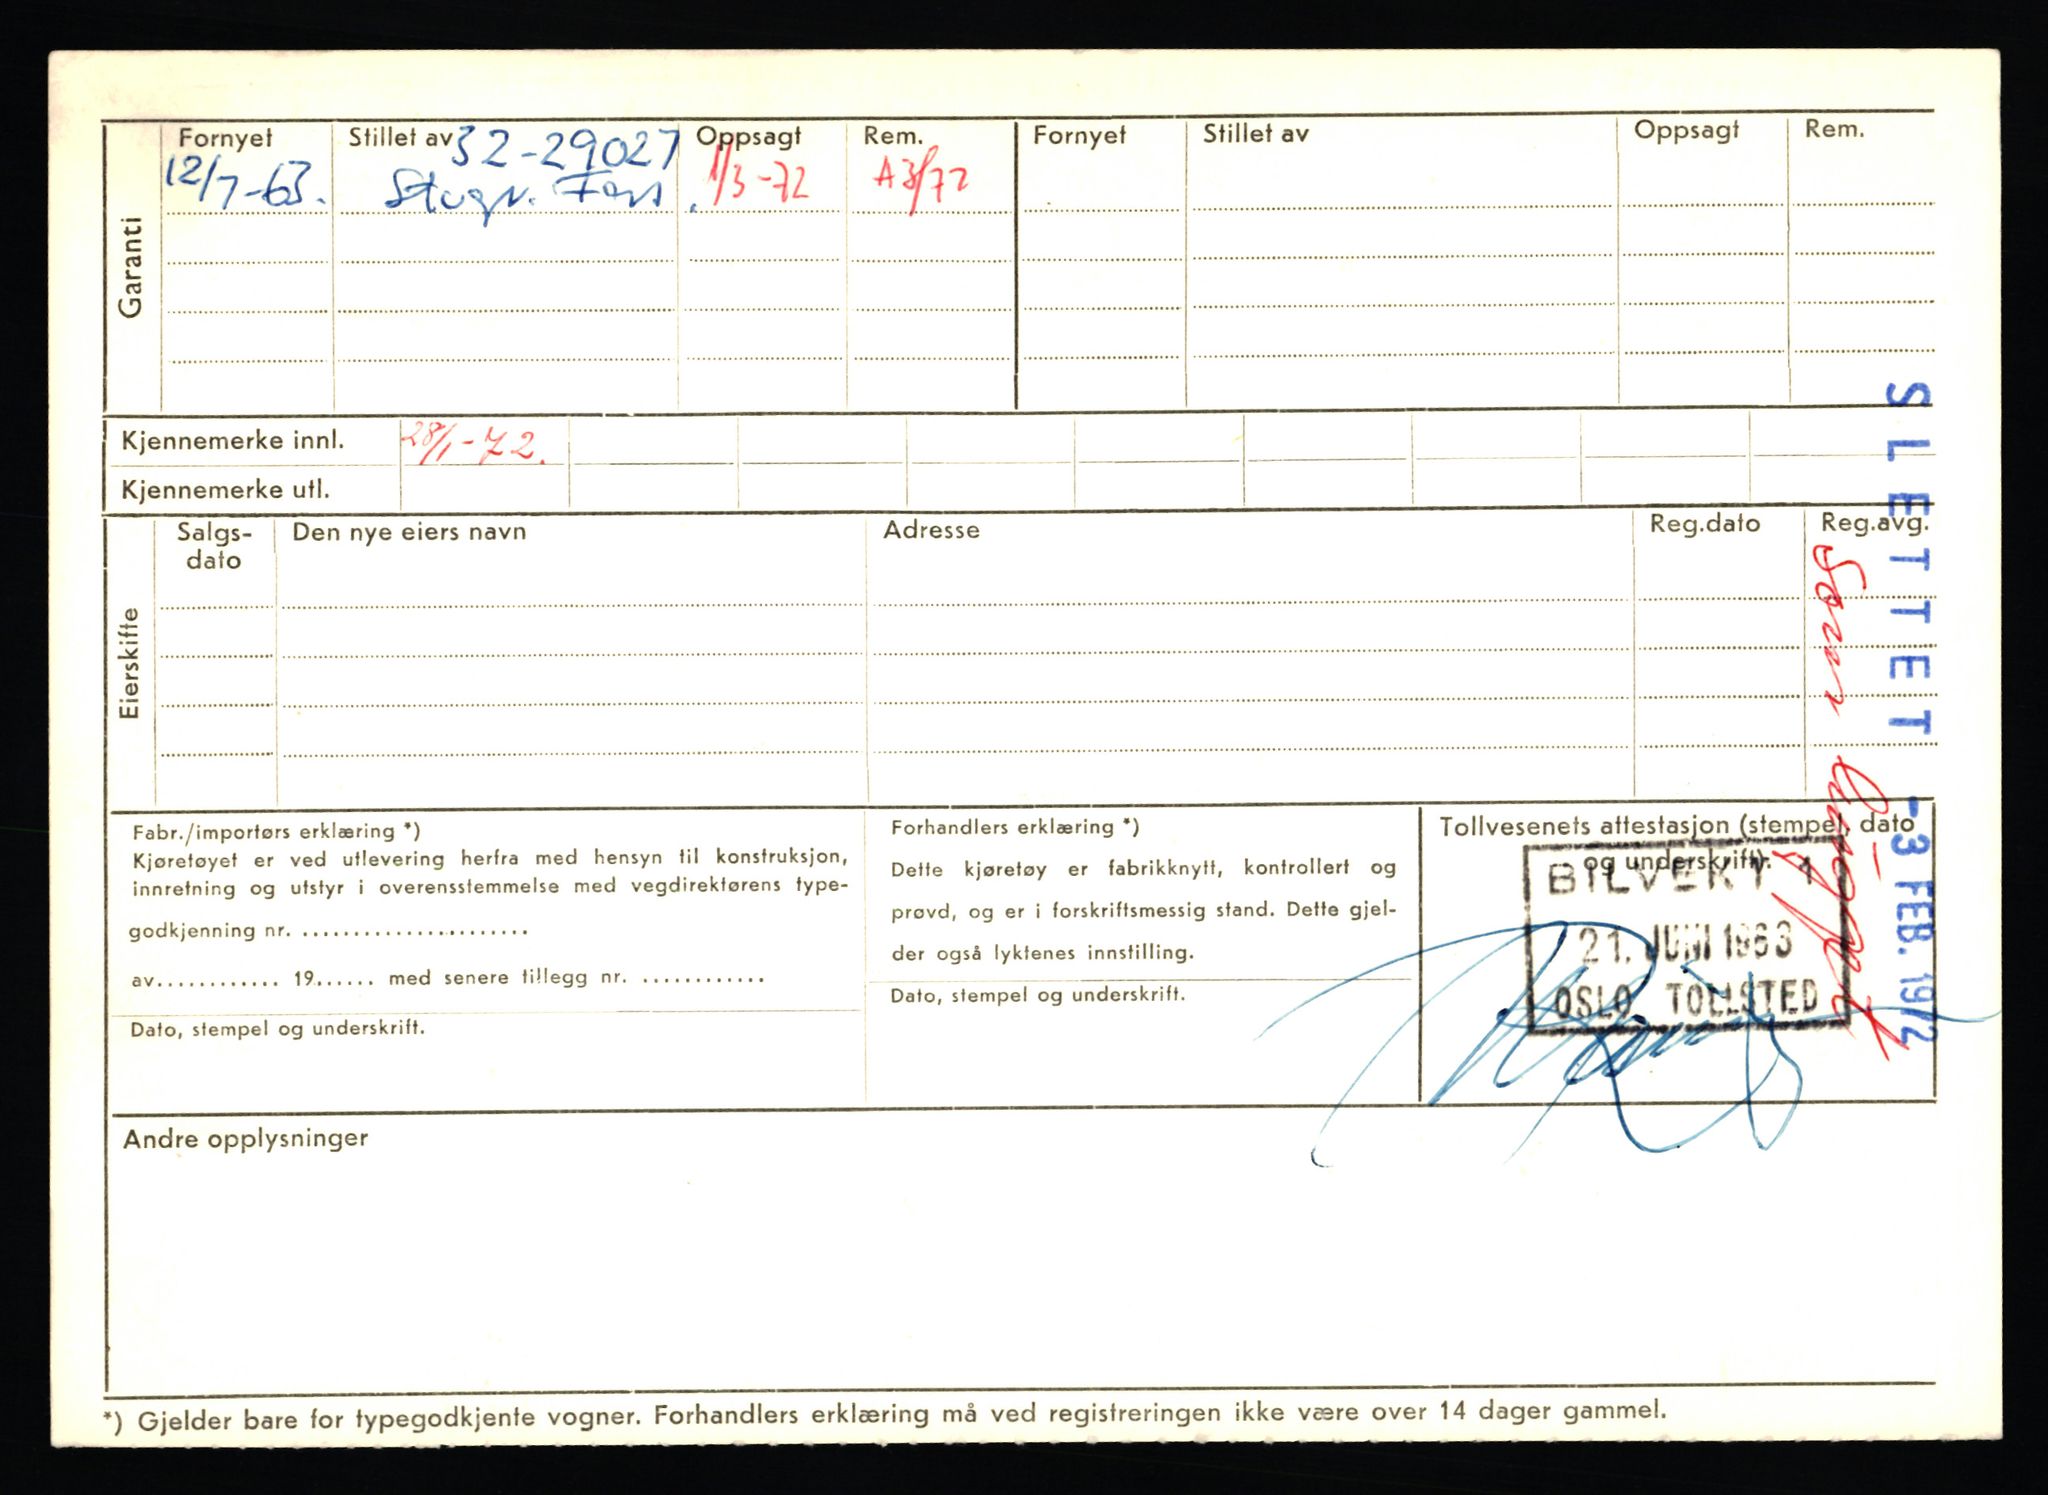 Garanti
Fornyet Stillet av Oppsagt Rem. Fornyet Stillet av Oppsagt Rem.
32-29027
12/7-63. 1/3-72 A3/72
Kjennemerke innl. 28/1-72.
Kjennemerke utl.
Eierskifte
Salgs-
dato
Den nye eiers navn Adresse Reg.dato Reg.avg.
SLETTET -3 FEB. 1972
Som
Fabr./importørs erklæring *)
Kjøretøyet er ved utlevering herfra med hensyn til konstruksjon,
innretning og utstyr i overensstemmelse med vegdirektørens type-
godkjenning nr. ......................
av............ 19...... med senere tillegg nr. ............
Dato, stempel og underskrift.
Forhandlers erklæring *)
Dette kjøretøy er fabrikknytt, kontrollert og
prøvd, og er i forskriftsmessig stand. Dette gjel-
der også lyktenes innstilling.
Dato, stempel og underskrift.
Tollvesenets attestasjon (stempel, dato
og underskrift).
BILVEKT 1
21. JUNI 1963
OSLO TOLLSTED
Andre opplysninger
*) Gjelder bare for typegodkjente vogner. Forhandlers erklæring må ved registreringen ikke være over 14 dager gammel.